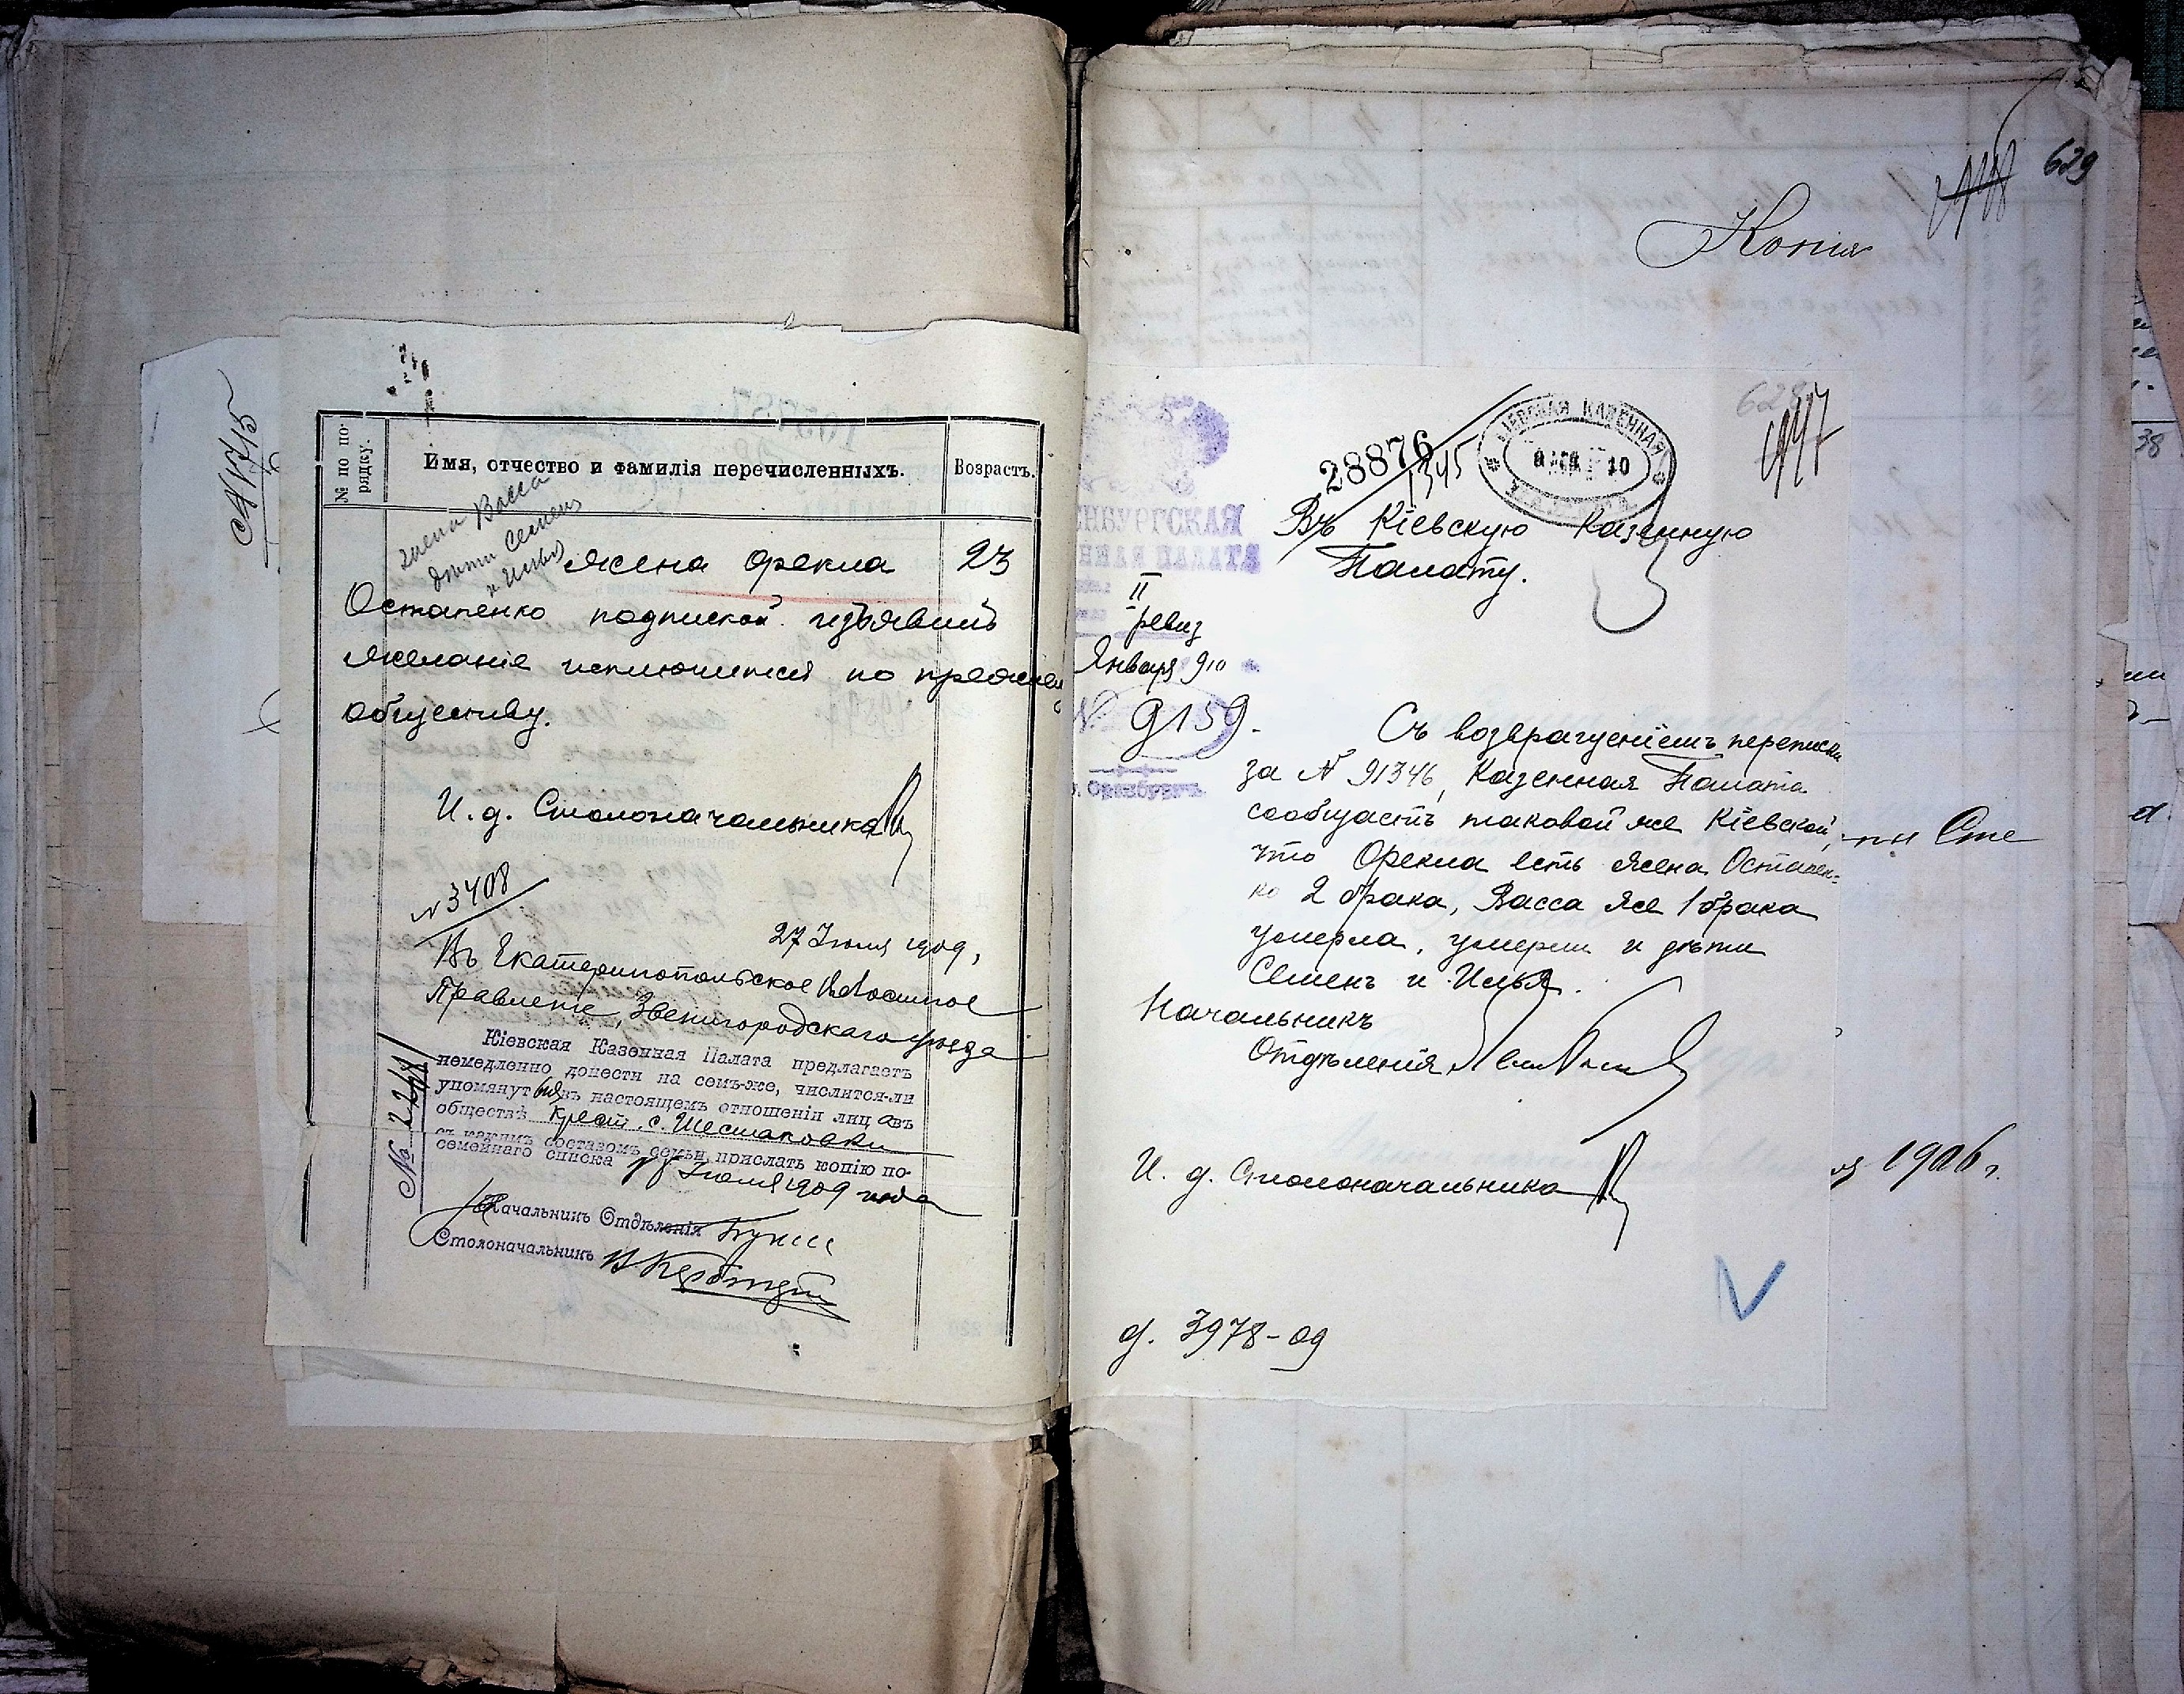 № по по-
рядку.
Имя, отчество и фамилія перечисленныхъ.
Возрастъ.
жена Васса
дѣти Семенъ
и Илья
жена Ѳрекла 23
Остапенко подпиской изъявилъ
желаніе исключится по прежнему
обществу.
И. д. Столоначальника
№ 3408
27 Іюля 1909,
Въ Екатеринопольское Волостное
Правленіе, Звенигородскаго уѣзда
Кіевская Казенная Палата предлагаетъ
немедленно донести на семъ-же, числится-ли
упомянутыя въ настоящемъ отношеніи лица въ
обществѣ крест. с. Шестаковки
съ какимъ составомъ семьи, прислать копію по-
семейнаго списка
Іюля 1909 года
Начальникъ Отдѣленія
Столоначальникъ
№
Копія
629
628
447
28876
1345
КІЕВСКАЯ КАЗЕННАЯ
10
Въ Кіевскую Казенную
Палату.
НБУРГСКАЯ
ННАЯ ПАЛАТА
II
ревиз
Января 910
№ 9159.
г. Оренбургъ.
Съ возвращеніемъ переписки
за № 91346, Казенная Палата
сообщаетъ таковой же Кіевской,
что Ѳрекла есть жена Остапен-
ко 2 брака, Васса же 1 брака
умерла, умерли и дѣти
Семенъ и Илья.
Начальникъ
Отдѣленія
И. д. Столоначальника
д. 3978-09
1906 г.
38